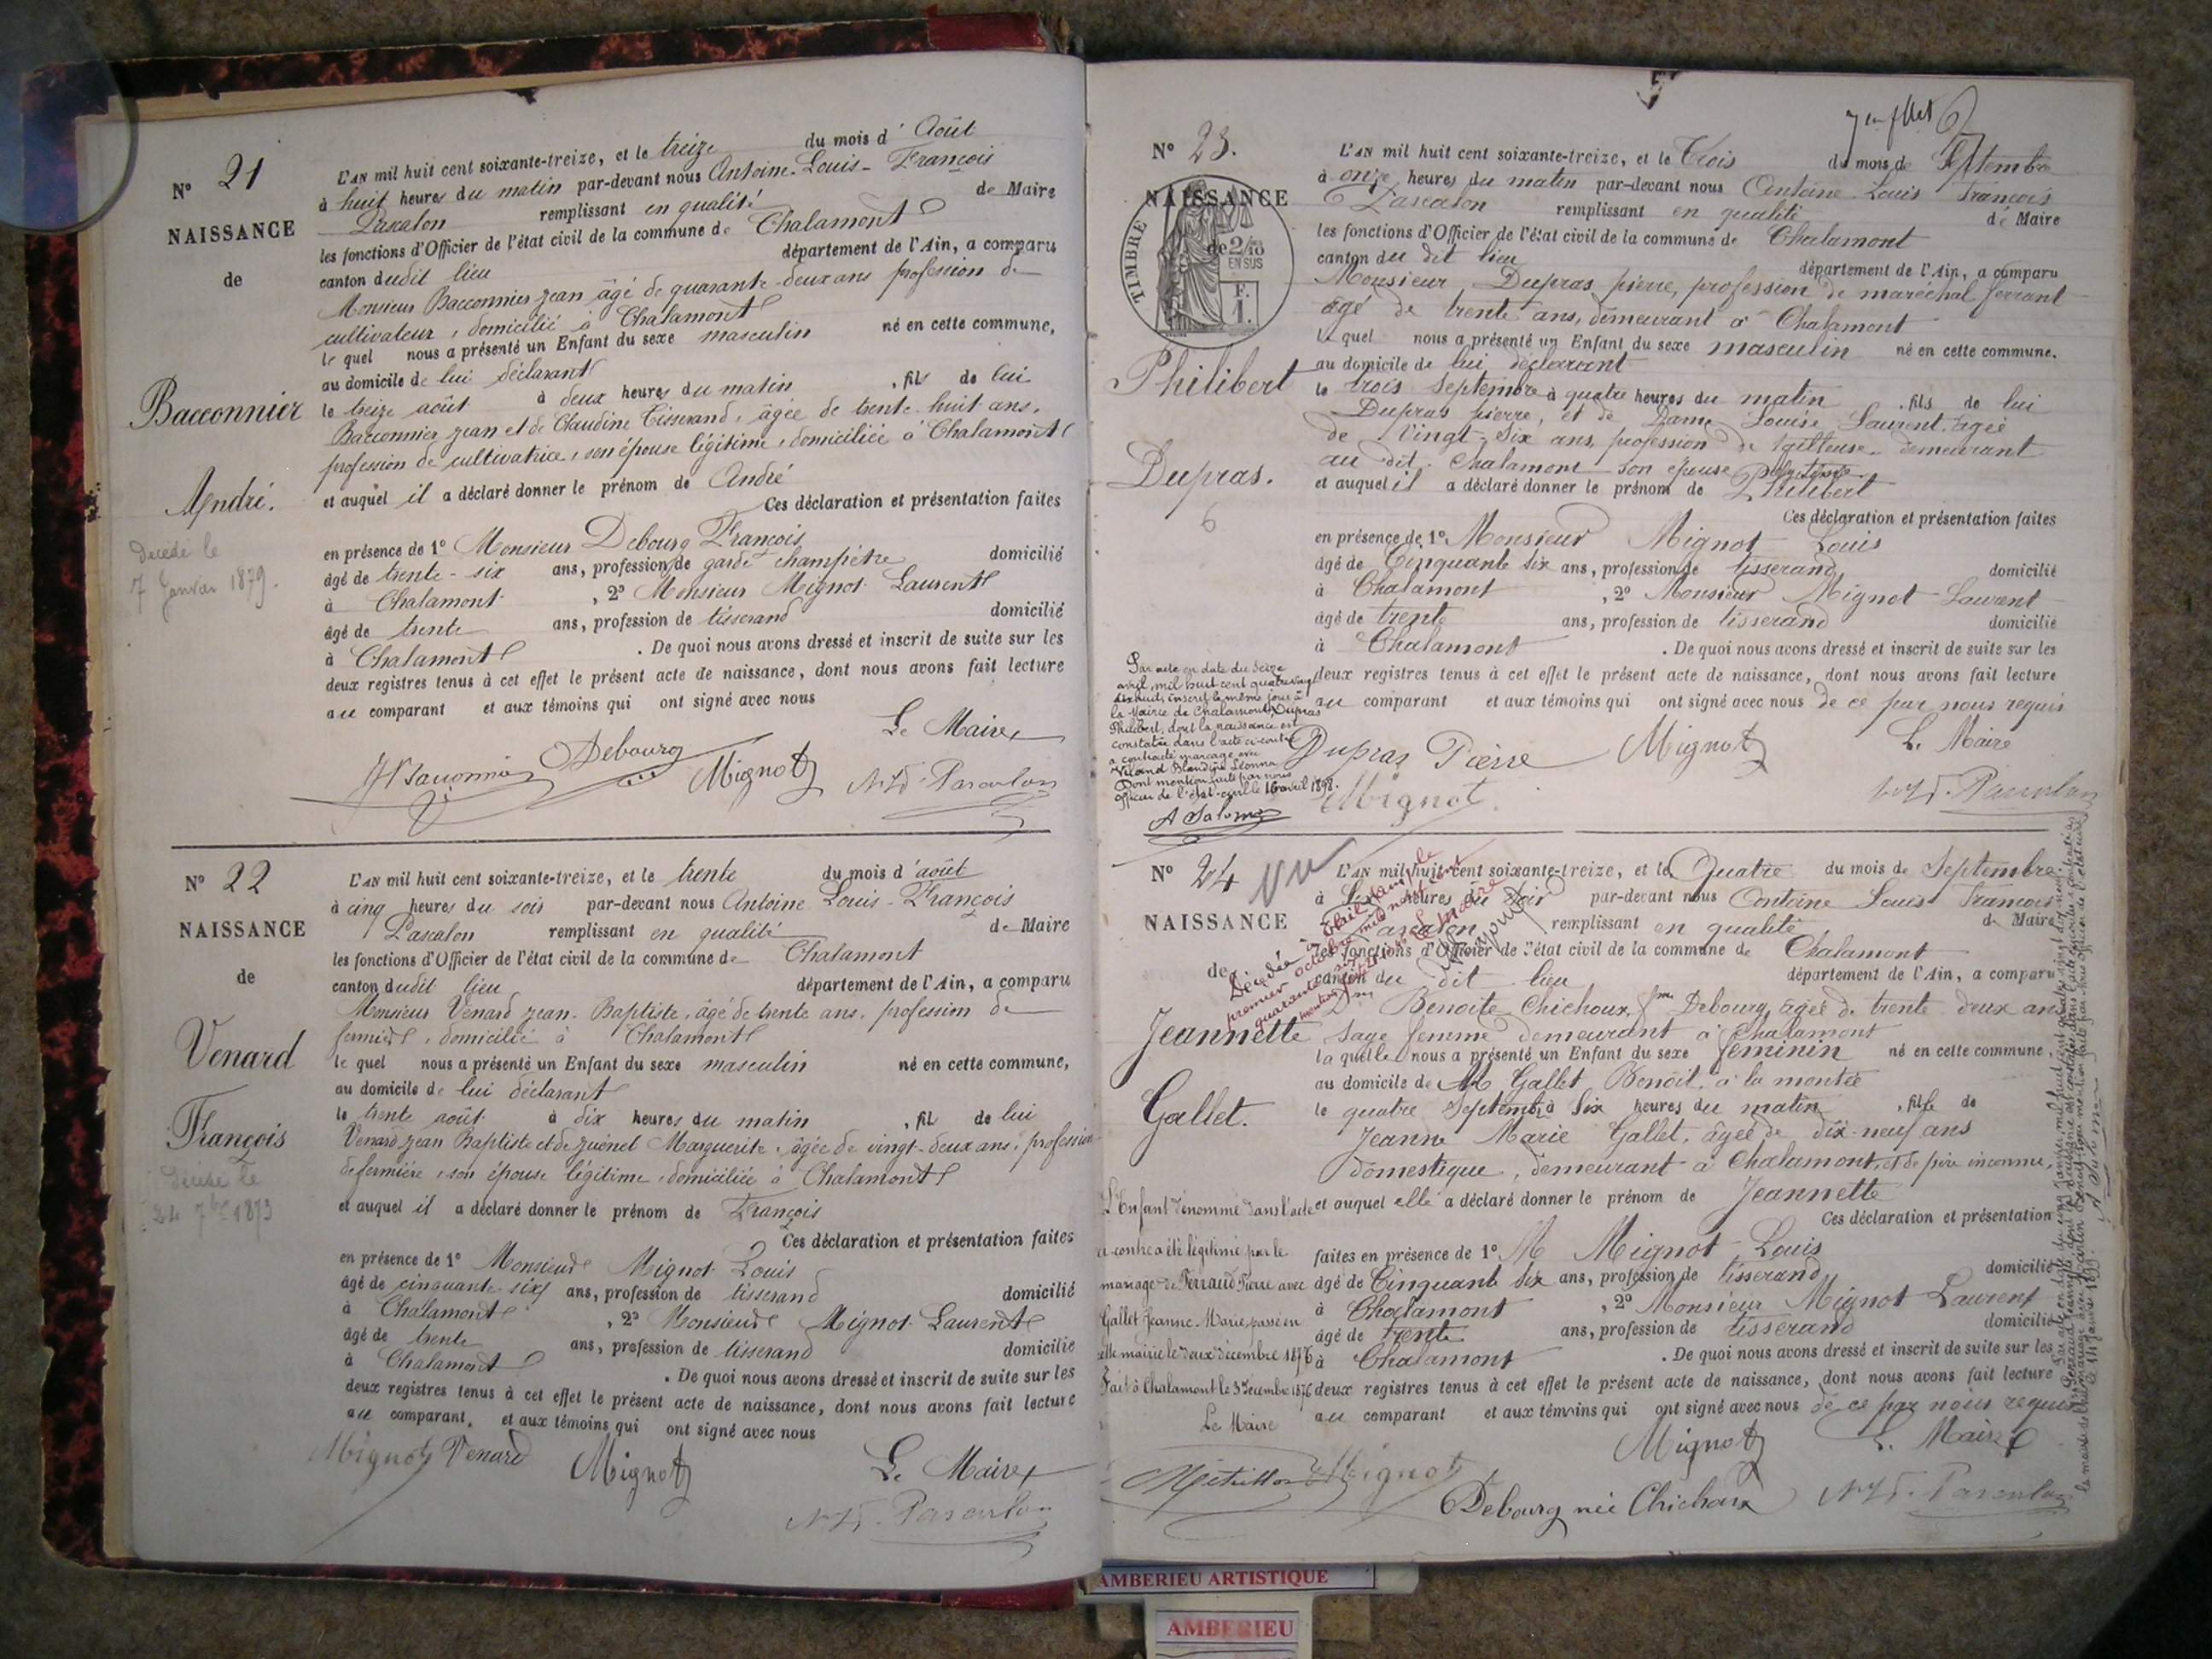 N° 21
NAISSANCE
de
Bacconnier
André.
Décédé le
7 Janvier 1879.
L'AN mil huit cent soixante-treize, et le treize du mois d'Août
à huit heures du matin par-devant nous Antoine-Louis-François
Pascalon remplissant en qualité de Maire
les fonctions d'Officier de l'état civil de la commune de Chalamont
canton dudit lieu département de l'Ain, a comparu
Monsieur Bacconnier Jean âgé de quarante-deux ans profession de
cultivateur, domicilié à Chalamont
le quel nous a présenté un Enfant du sexe masculin né en cette commune,
au domicile de lui déclarant
le treize août à deux heures du matin, fils de lui
Bacconnier Jean et de Claudine Tisserand, âgée de trente-huit ans,
profession de cultivatrice, son épouse légitime, domiciliée à Chalamont
et auquel il a déclaré donner le prénom de André
Ces déclaration et présentation faites
en présence de 1° Monsieur Debourg François
âgé de trente-six ans, profession de garde champêtre domicilié
à Chalamont, 2° Monsieur Mignot Laurent
âgé de trente ans, profession de tisserand domicilié
à Chalamont. De quoi nous avons dressé et inscrit de suite sur les
deux registres tenus à cet effet le présent acte de naissance, dont nous avons fait lecture
au comparant et aux témoins qui ont signé avec nous
Le Maire
Debourg Mignot Pascalon
N° 22
NAISSANCE
de
Venard
François
Décédé le
24 7bre 1873
L'AN mil huit cent soixante-treize, et le trente du mois d'août
à cinq heures du soir par-devant nous Antoine Louis-François
Pascalon remplissant en qualité de Maire
les fonctions d'Officier de l'état civil de la commune de Chalamont
canton dudit lieu département de l'Ain, a comparu
Monsieur Venard Jean-Baptiste, âgé de trente ans, profession de
fermier, domicilié à Chalamont
le quel nous a présenté un Enfant du sexe masculin né en cette commune,
au domicile de lui déclarant
le trente août à dix heures du matin, fil de lui
Venard Jean Baptiste et de Juénet Marguerite, âgée de vingt-deux ans, profession
de fermière, son épouse légitime, domiciliée à Chalamont
et auquel il a déclaré donner le prénom de François
Ces déclaration et présentation faites
en présence de 1° Monsieur Mignot Louis
âgé de cinquante-six ans, profession de tisserand domicilié
à Chalamont, 2° Monsieur Mignot Laurent
âgé de trente ans, profession de tisserand domicilié
à Chalamont. De quoi nous avons dressé et inscrit de suite sur les
deux registres tenus à cet effet le présent acte de naissance, dont nous avons fait lecture
au comparant, et aux témoins qui ont signé avec nous
Mignot Venard Mignot Le Maire
Pascalon
N° 23.
NAISSANCE
de
TIMBRE
2/10
EN SUS
F.
1.
Philibert
Dupras.
6
L'AN mil huit cent soixante-treize, et le Trois du mois de Septembre
à onze heures du matin par-devant nous Antoine Louis François
Pascalon remplissant en qualité de Maire
les fonctions d'Officier de l'état civil de la commune de Chalamont
canton du dit lieu département de l'Ain, a comparu
Monsieur Dupras pierre, profession de maréchal ferrant
âgé de trente ans, demeurant à Chalamont
le quel nous a présenté un Enfant du sexe masculin né en cette commune.
au domicile de lui déclarant
le trois Septembre à quatre heures du matin, fils de lui
Dupras pierre, et de Dame Louise Laurent, agée
de Vingt-Six ans, profession de tailleuse demeurant
au dit Chalamont son épouse légitime
et auquel il a déclaré donner le prénom de Philibert
Ces déclaration et présentation faites
en présence de 1° Monsieur Mignot Louis
âgé de Cinquante Six ans, profession de tisserand domicilié
à Chalamont, 2° Monsieur Mignot Laurent
âgé de trente ans, profession de tisserand domicilié
à Chalamont. De quoi nous avons dressé et inscrit de suite sur les
deux registres tenus à cet effet le présent acte de naissance, dont nous avons fait lecture
au comparant et aux témoins qui ont signé avec nous de ce par nous requis
Par acte en date du Seize
avril, mil huit cent quatre vingt
dix huit, inscrit le même jour à
la Mairie de Chalamont, Dupras
Philibert, dont la naissance est
constatée dans l'acte ci-contre
a contracté mariage avec
Blandine Léonna
Dont mention faite par nous
officier de l'état-civil le 16 avril 1898.
A Salomo
Dupras Pierre Mignot Le Maire
Mignot. Pascalon
N° 24
Vu
NAISSANCE
de
Jeannette
Gallet.
L'AN mil huit cent soixante-treize, et le Quatre du mois de Septembre
à Six heures du Soir par-devant nous Antoine Louis François
Pascalon remplissant en qualité de Maire
les fonctions d'Officier de l'état civil de la commune de Chalamont
canton du dit lieu département de l'Ain, a comparu
Benoîte Chichoux, fme Debourg, agée de trente deux ans
Sage femme demeurant à Chalamont
la quelle nous a présenté un Enfant du sexe féminin né en cette commune.
au domicile de M Gallet Benoît, à la montée
le quatre Septembre à Six heures du matin, fille de
Jeanne Marie Gallet, âgée de dix-neuf ans
domestique, demeurant à Chalamont, et de père inconnu,
et auquel elle a déclaré donner le prénom de Jeannette
Ces déclaration et présentation
faites en présence de 1° M Mignot Louis
âgé de Cinquante Six ans, profession de tisserand domicilié
à Chalamont, 2° Monsieur Mignot Laurent
âgé de trente ans, profession de tisserand domicilié
à Chalamont. De quoi nous avons dressé et inscrit de suite sur les
deux registres tenus à cet effet le présent acte de naissance, dont nous avons fait lecture
au comparant et aux témoins qui ont signé avec nous de ce par nous requis
L'Enfant dénommé dans l'acte
ci-contre a été légitimé par le
mariage de Perraud Pierre avec
Gallet Jeanne-Marie, passé en
cette mairie le deux décembre 1876
Fait à Chalamont le 3 décembre 1876
Le Maire
Mignot Le Maire
Métrillon Mignot
Debourg née Chichoux Pascalon
AMBERIEU ARTISTIQUE
AMBERIEU